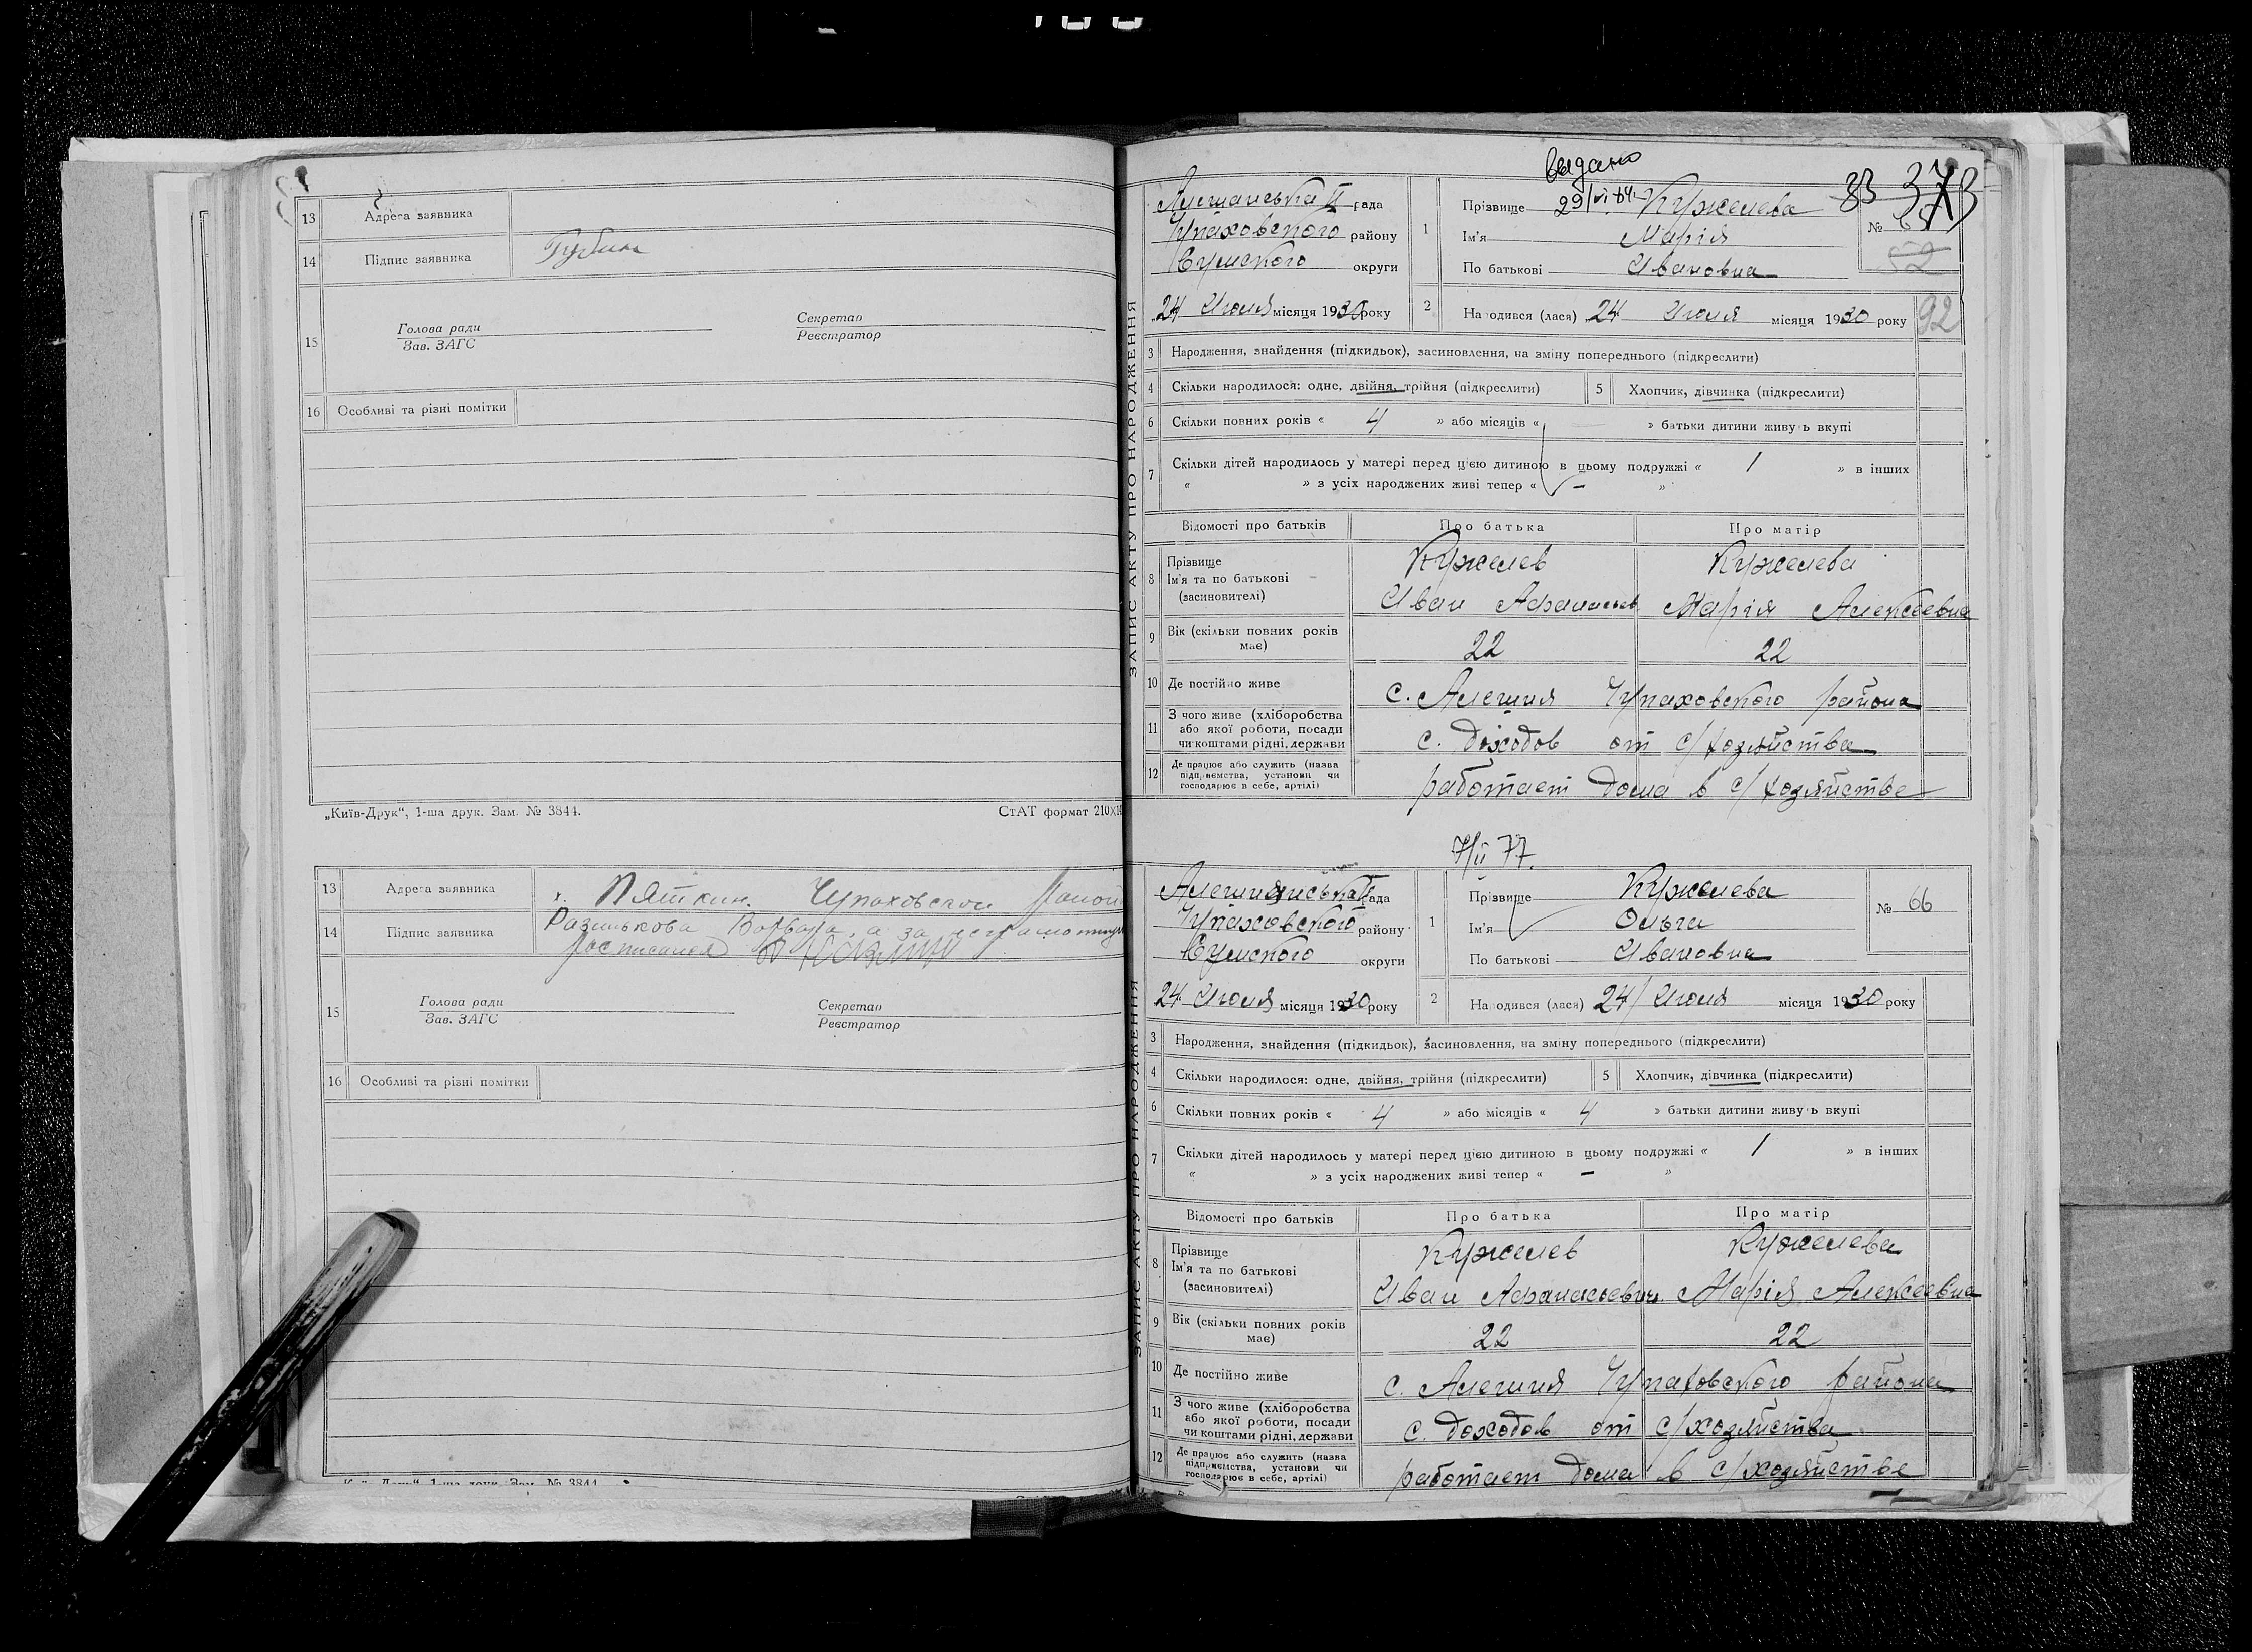 13 Адреса заявника
14 Підпис заявника Губина
15 Голова ради Секретар
Зав. ЗАГС Реєстратор
16 Особливі та різні помітки
„Київ-Друк“, 1-ша друк. Зам. № 3844. СтАТ формат 210х1
13 Адреса заявника х. Пяткин. Чупаховского
14 Підпис заявника Разинькова Варвара, а за
расписался
15 Голова ради Секретар
Зав. ЗАГС Реєстратор
16 Особливі та різні помітки
1-ша друк. Зам. № 3844
ЗАПИС АКТУ ПРО НАРОДЖЕННЯ
выдано
29/VI 83 373
рада
Чупаховского району
Сумского округи
24 Июля місяця 1930 року
1 Прізвище Кужелева
Ім'я Марія
По батькові Ивановна
№ 65
52
2 Народився (лася) 24 Июля місяця 1930 року 92
3 Народження, знайдення (підкидьок), засиновлення, на зміну попереднього (підкреслити)
4 Скільки народилося: одне, двійня, трійня (підкреслити) 5 Хлопчик, дівчинка (підкреслити)
6 Скільки повних років « 4 » або місяців « — » батьки дитини живуть вкупі
7 Скільки дітей народилось у матері перед цією дитиною в цьому подружжі « 1 » в інших
« » з усіх народжених живі тепер « — »
Відомості про батьків Про батька Про матір
8 Прізвище Кужелев Кужелева
Ім'я та по батькові Иван Афанасьев Марія Алексеевна
(засиновителі)
9 Вік (скільки повних років має) 22 22
10 Де постійно живе с. Алешня Чупаховского района
11 З чого живе (хліборобства
або якої роботи, посади с. доходов от с/хозяйства
чи коштами рідні, держави
12 Де працює або служить (назва
підприємства, установи чи работает дома в с/хозяйстве
господарює в себе, артілі)
7/II 77.
ЗАПИС АКТУ ПРО НАРОДЖЕННЯ
Алешнянська рада
Чупаховского району
Сумского округи
24 Июля місяця 1930 року
1 Прізвище Кужелева
Ім'я Ольга
По батькові Ивановна
№ 66
2 Народився (лася) 24 Июля місяця 1930 року
3 Народження, знайдення (підкидьок), засиновлення, на зміну попереднього (підкреслити)
4 Скільки народилося: одне, двійня, трійня (підкреслити) 5 Хлопчик, дівчинка (підкреслити)
6 Скільки повних років « 4 » або місяців « 4 » батьки дитини живуть вкупі
7 Скільки дітей народилось у матері перед цією дитиною в цьому подружжі « 1 » в інших
« » з усіх народжених живі тепер « — »
Відомості про батьків Про батька Про матір
8 Прізвище Кужелев Кужелева
Ім'я та по батькові Иван Афанасьевич. Марія Алексеевна
(засиновителі)
9 Вік (скільки повних років має) 22 22
10 Де постійно живе с. Алешня Чупаховского района
11 З чого живе (хліборобства
або якої роботи, посади с. доходов от с/хозяйства
чи коштами рідні, держави
12 Де працює або служить (назва
підприємства, установи чи работает дома в с/хозяйстве
господарює в себе, артілі)